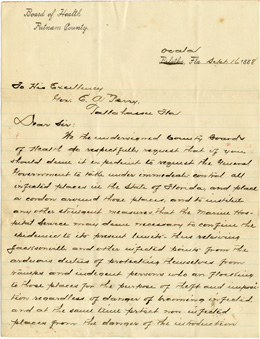 Board of Health
Putnam County.
Ocala
Palatka, Fla Sept. 16 1888
To His Excellency
Gov. E. A. Perry,
Tallahassee Fla
Dear Sir:
We the undersigned County Boards
of Health do respectfully request that if you
should deem it expedient to request the General
Government to take under immediate control all
infected places in the State of Florida, and place
a cordon around those places, and to institute
any other stringent measures that the Marine Hos-
pital Service may deem necessary to confine the
epidemic to its present limits thus relieving
Jacksonville and other infected points from the
arduous duties of protecting themselves from
tramps and indigent persons who are flocking
to those places for the purpose of theft and impo-
sition regardless of danger of becoming infected
and at the same time protect non infected
places from the danger of the introduction